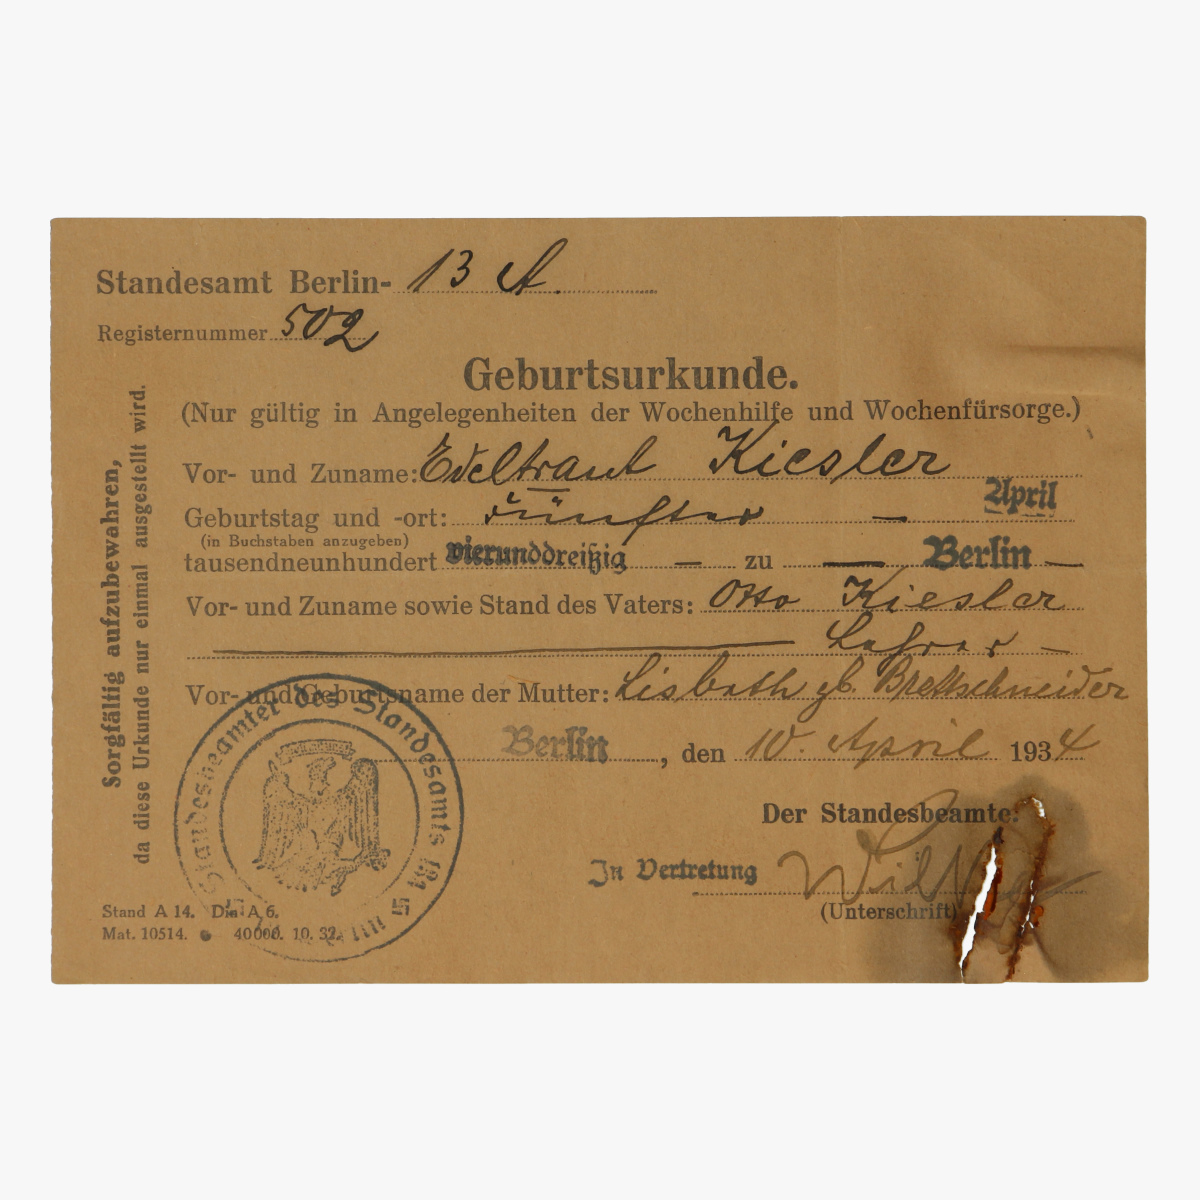 Standesamt Berlin- 13 A.
Registernummer 502
Geburtsurkunde.
(Nur gültig in Angelegenheiten der Wochenhilfe und Wochenfürsorge.)
Vor- und Zuname: Edeltraut Kiesler
Geburtstag und -ort: fünften — April
(in Buchstaben anzugeben)
tausendneunhundert vierunddreißig — zu — Berlin —
Vor- und Zuname sowie Stand des Vaters: Otto Kiesler
Lehrer —
Vor- und Geburtsname der Mutter: Lisbeth gb. Brettschneider
Berlin, den 10. April 1934
Der Standesbeamte:
In Vertretung
(Unterschrift)
Stand A 14. Din A 6.
Mat. 10514. ● 40000. 10. 32.
Sorgfältig aufzubewahren,
da diese Urkunde nur einmal ausgestellt wird.
Standesbeamter des Standesamts 13A